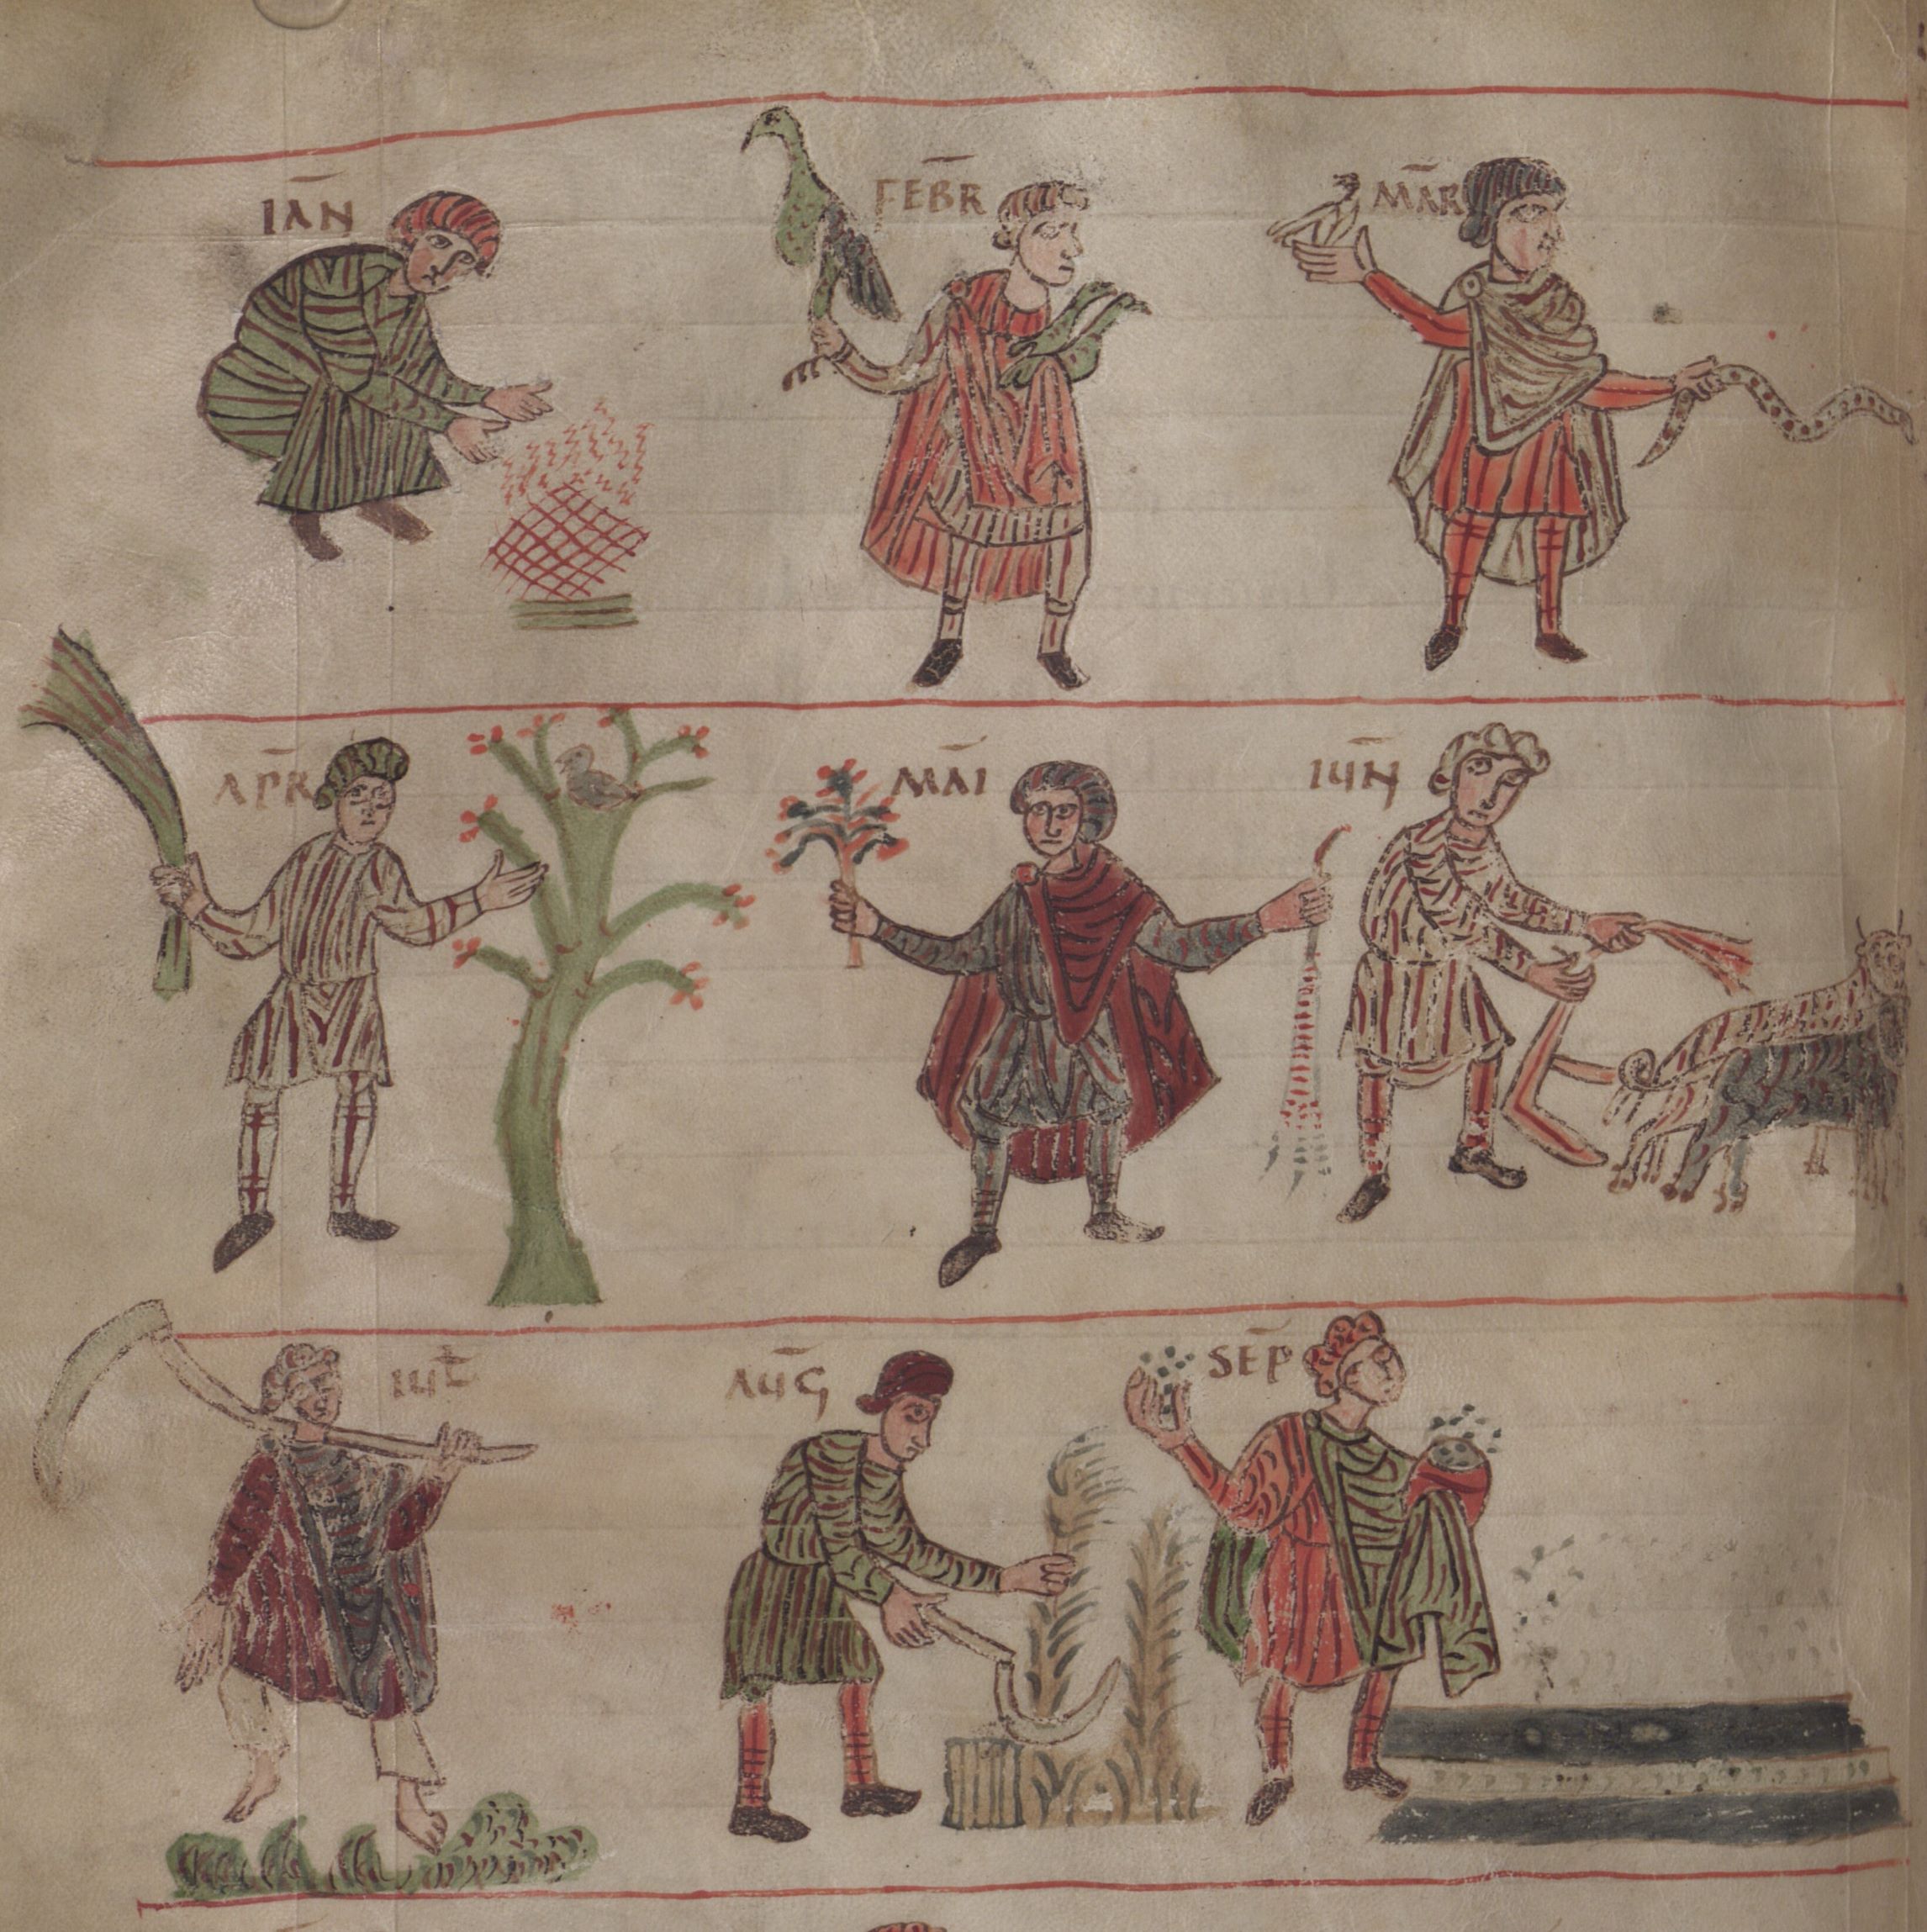 IAN
FEBR
MAR
APR
MAI
IUN
IUL
AUG
SEP